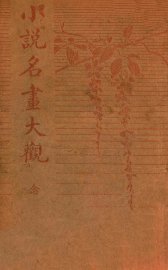 小說名畫大觀
念